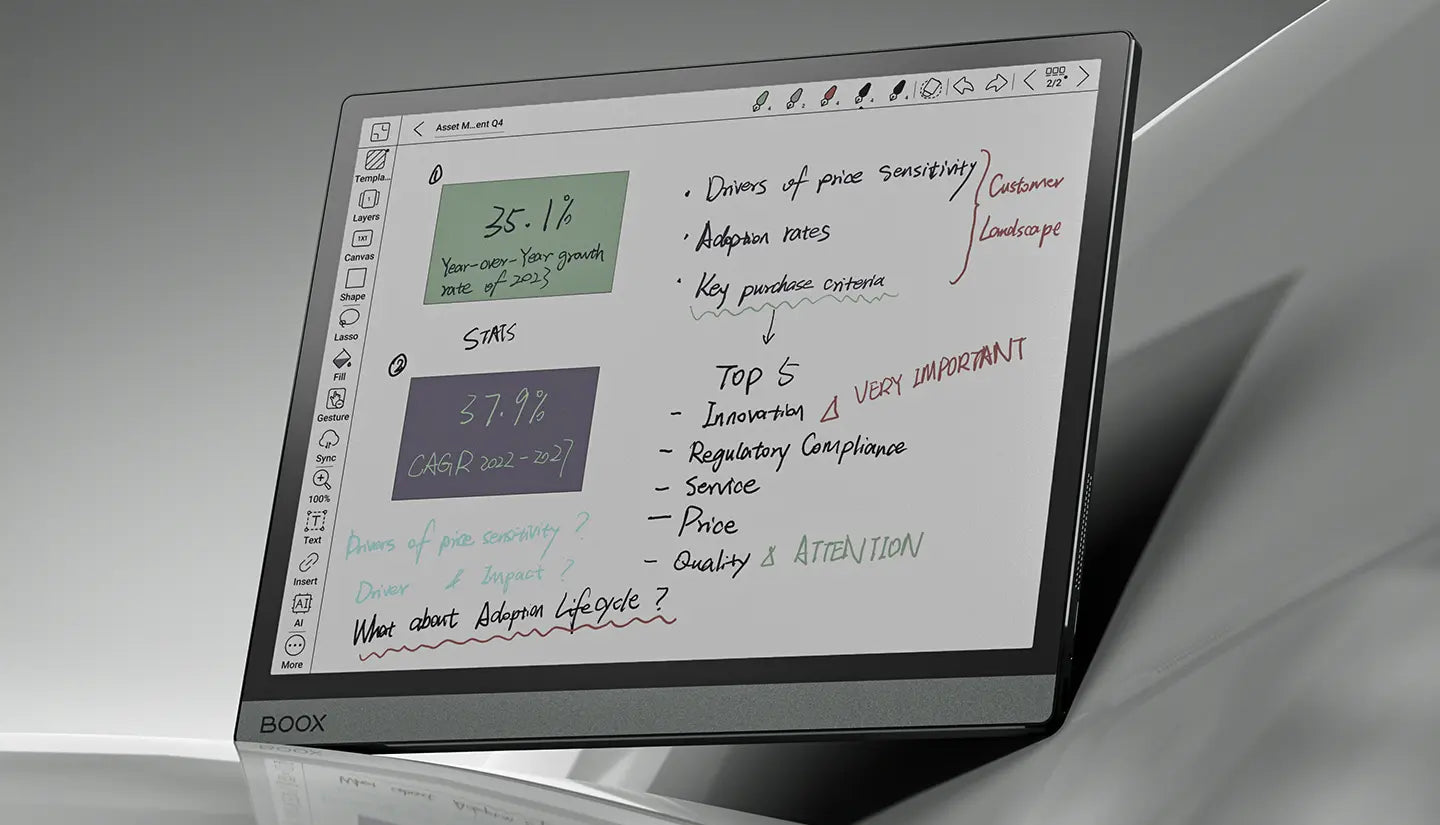 Asset M...ent Q4
2/2
Templa...
Layers
1X1
Canvas
Shape
Lasso
Fill
Gesture
Sync
100%
Text
Insert
AI
AI
More
1
35.1%
Year-over-Year growth
rate of 2023
STATS
2
37.9%
CAGR 2022-2027
Drivers of price sensitivity ?
Driver & Impact ?
What about Adoption Lifecycle ?
• Drivers of price sensitivity
• Adoption rates
• Key purchase criteria
Customer
Landscape
Top 5
- Innovation VERY IMPORTANT
- Regulatory Compliance
- Service
- Price
- Quality ATTENTION
BOOX